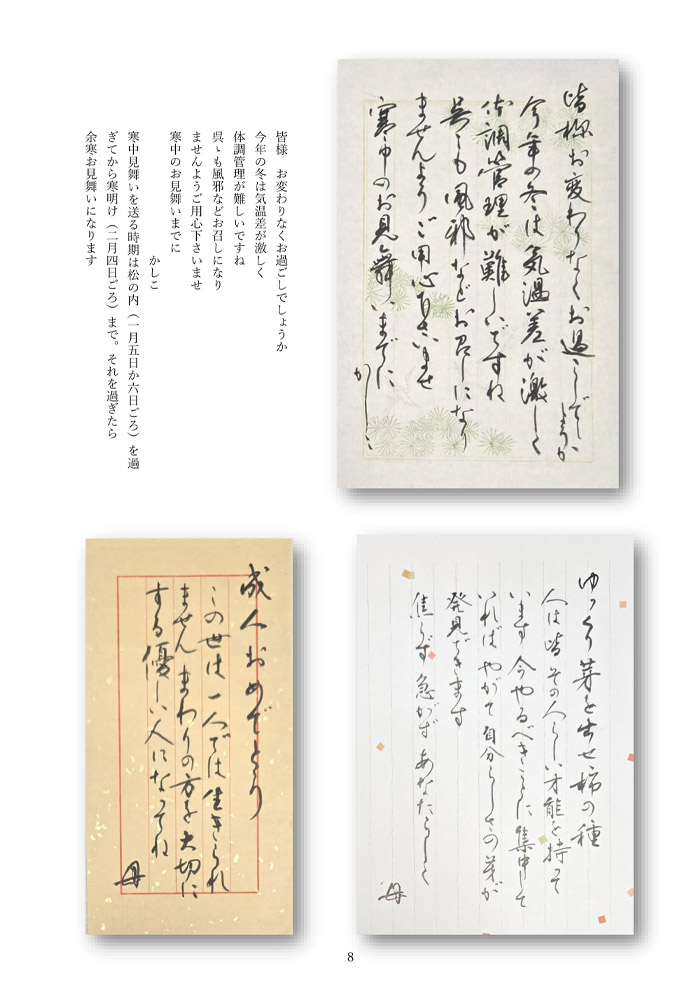 皆様お変わりなくお過ごしでしょうか
今年の冬は気温差が激しく
体調管理が難しいですね
呉々も風邪などお召しになり
ませんようご用心下さいませ
寒中のお見舞いまでに
かしこ
皆様　お変わりなくお過ごしでしょうか
今年の冬は気温差が激しく
体調管理が難しいですね
呉ゝも風邪などお召しになり
ませんようご用心下さいませ
寒中のお見舞いまでに
かしこ
寒中見舞いを送る時期は松の内（一月五日か六日ごろ）を過
ぎてから寒明け（二月四日ごろ）まで。それを過ぎたら
余寒お見舞いになります
ゆっくり芽を出せ柿の種
人は皆その人らしい才能を持って
います今やるべきことに集中して
いればやがて自分らしさの芽が
発見できます
焦らず急がずあなたらしく
母
成人おめでとう
この世は一人では生きられ
ませんまわりの方を大切に
する優しい人になってね
母
8